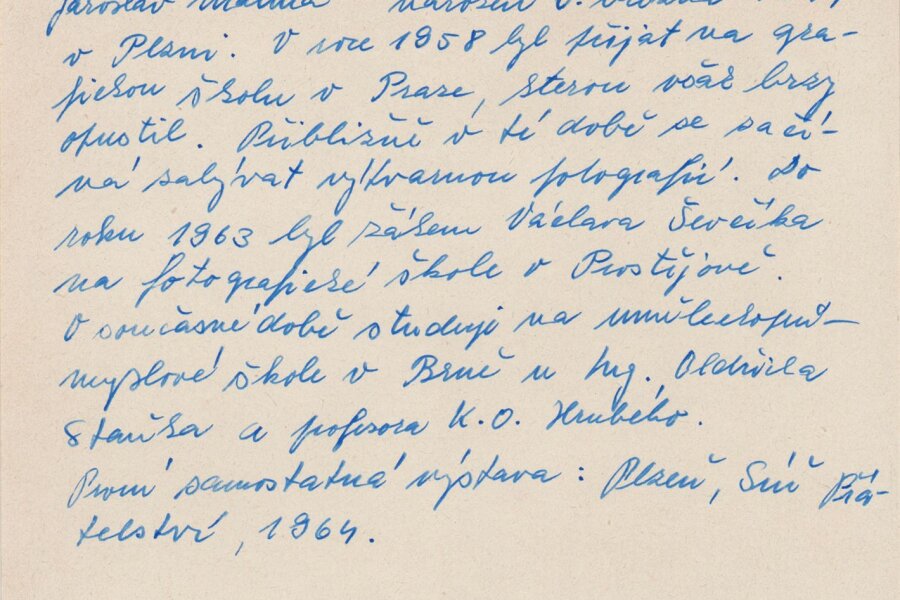 Jaroslav narozen
v Plzni. V roce 1958 byl přijat na gra-
fickou školu v Praze, kterou však brzy
opustil. Přibližně v té době se začí-
ná zabývat výtvarnou fotografií. Do
roku 1963 byl žákem Václava Ševčíka
na fotografické škole v Prostějově.
V současné době studuje na uměleckoprů-
myslové škole v Brně u Ing. Oldřicha
Staňka a profesora K.O. Hrubého.
První samostatná výstava: Plzeň, Síň Přá-
telství, 1964.